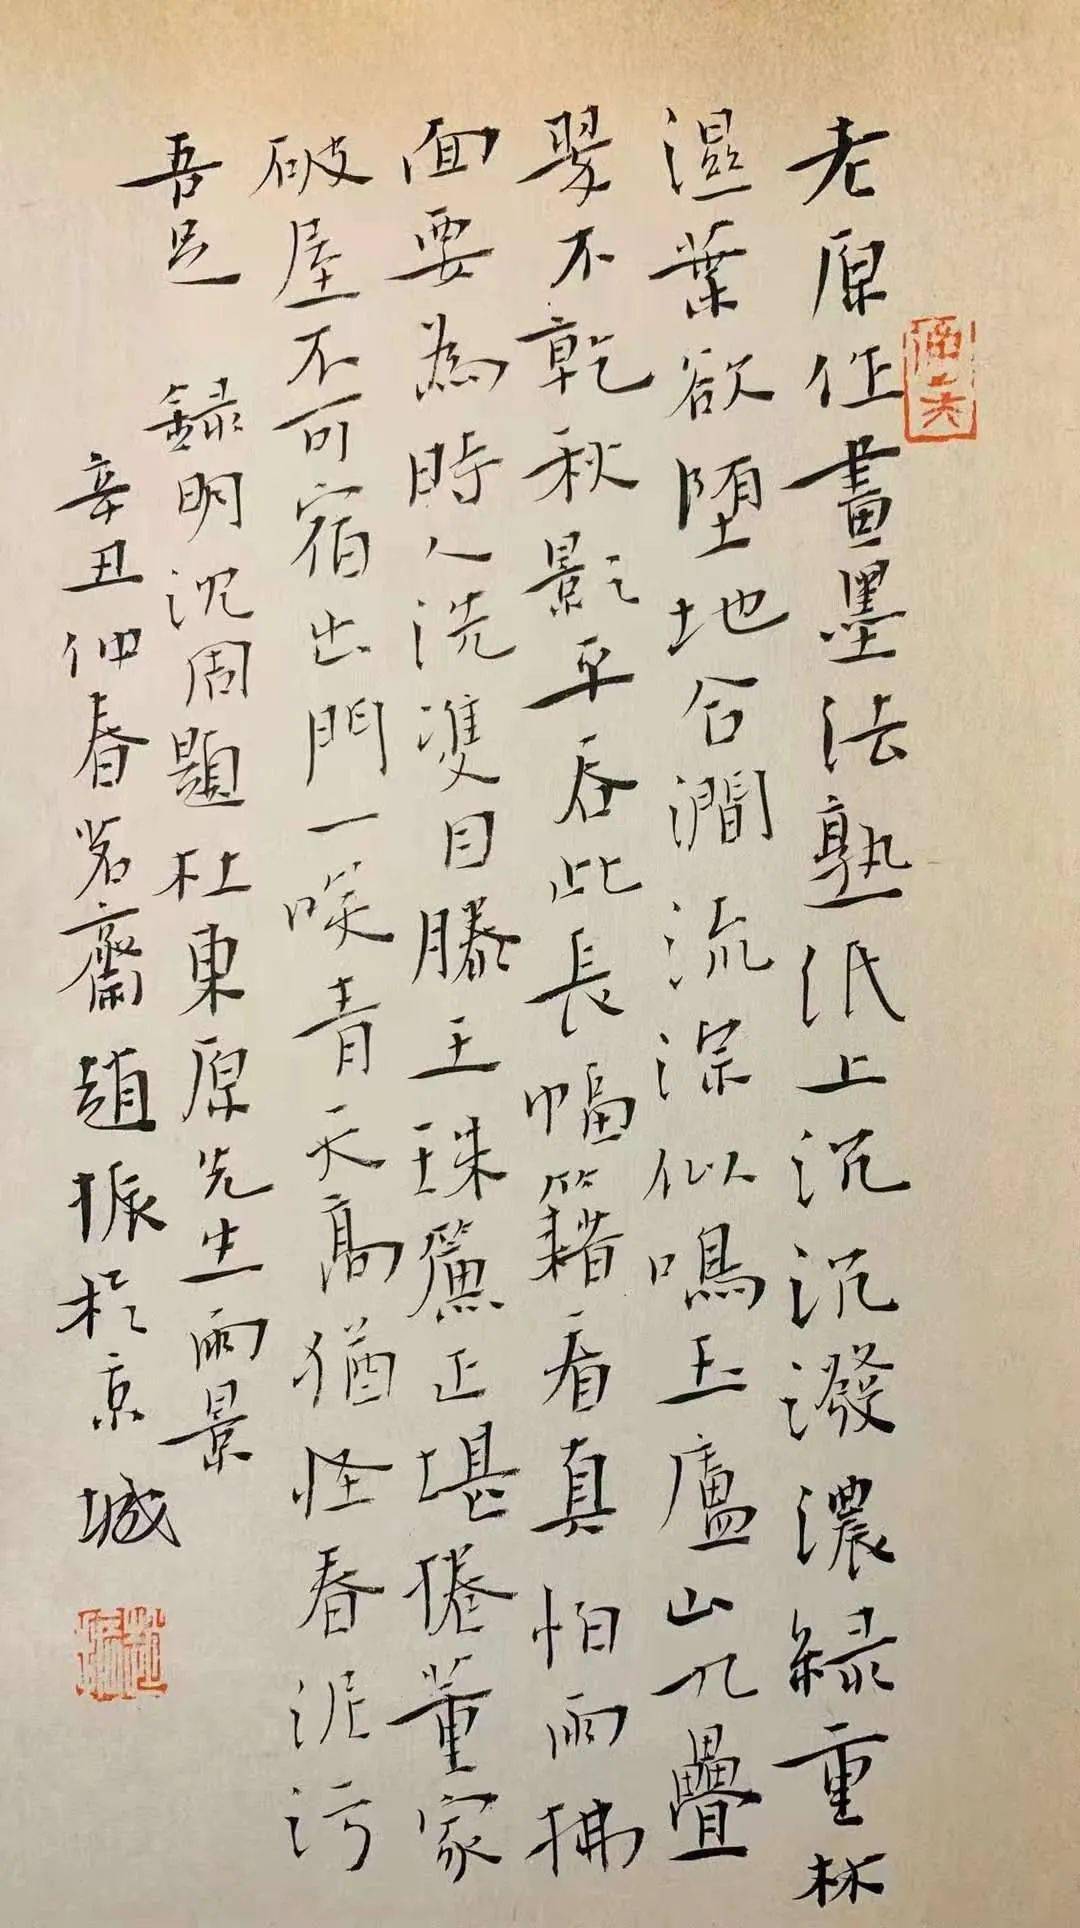 老原作畫墨法熟紙上沉沉潑濃緑重林
濕葉欲墮地合澗流淙似鳴玉廬山九疊
翠不乾秋影平吞此長幅籍看真怕雨拂
面要為時人洗雙目滕王珠簾正堪捲董家
破屋不可宿出門一笑青天高猶怪春泥污
吾足
録明沈周題杜東原先生雨景
辛丑仲春茗齋趙振於京城